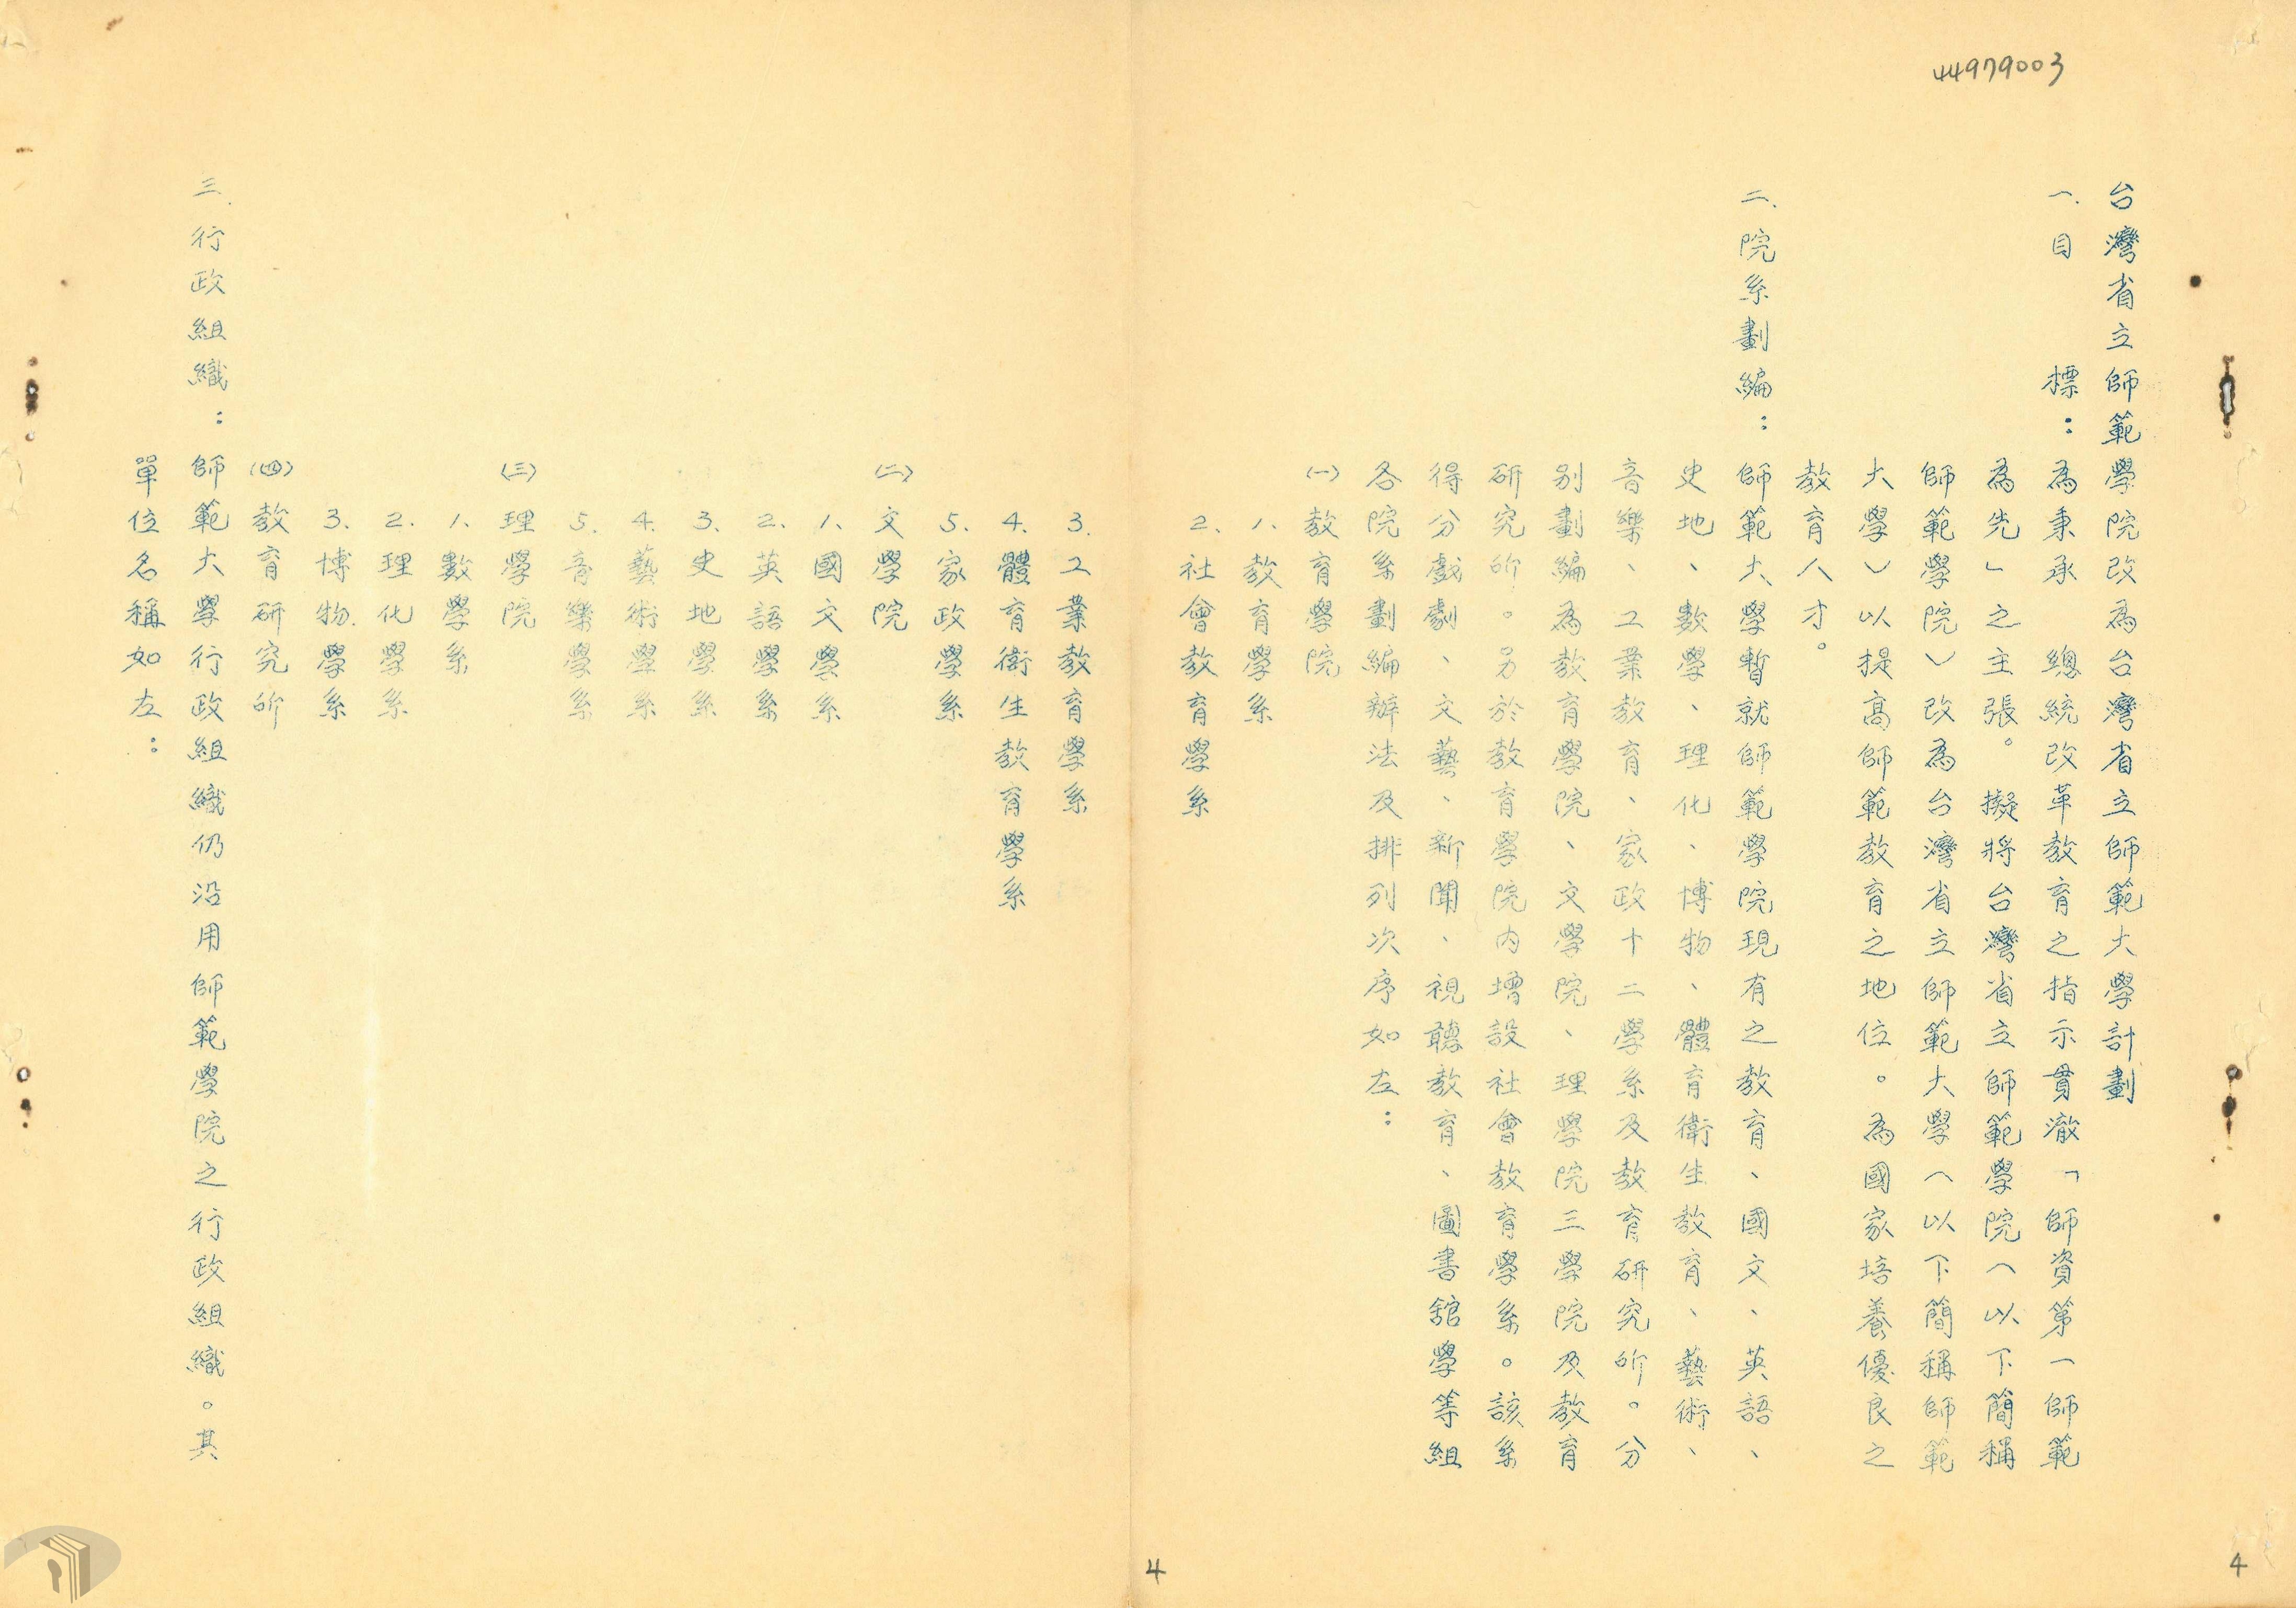 44979003
台灣省立師範學院改為台灣省立師範大學計劃
一、目　標：為秉承　總統改革教育之指示貫澈「師資第一師範
為先」之主張。擬將台灣省立師範學院（以下簡稱
師範學院）改為台灣省立師範大學（以下簡稱師範
大學）以提高師範教育之地位。為國家培養優良之
教育人才。
二、院系劃編：師範大學暫就師範學院現有之教育、國文、英語、
史地、數學、理化、博物、體育衛生教育、藝術、
音樂、工業教育、家政十二學系及教育研究所。分
別劃編為教育學院、文學院、理學院三學院及教育
研究所。另於教育學院內增設社會教育學系。該系
得分戲劇、文藝、新聞、視聽教育、圖書舘學等組
各院系劃編辦法及排列次序如左：
㈠教育學院
1、教育學系
2、社會教育學系
3、工業教育學系
4、體育衛生教育學系
5、家政學系
㈡文學院
1、國文學系
2、英語學系
3、史地學系
4、藝術學系
5、音樂學系
㈢理學院
1、數學系
2、理化學系
3、博物學系
㈣教育研究所
三、行政組織：師範大學行政組織仍沿用師範學院之行政組織。其
單位名稱如左：
4
4